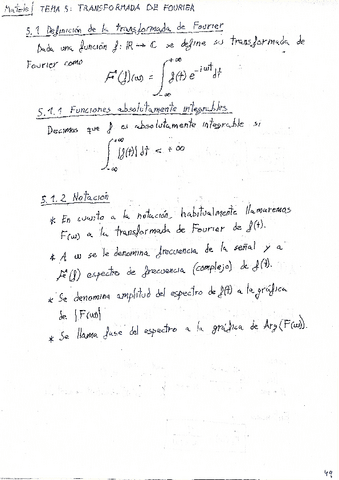 Materia| TEMA 5: TRANSFORMADA DE FOURIER
5.1 Definición de la transformada de Fourier
Dada una función f: ℝ → ℂ se define su transformada de
Fourier como
F(f)(ω) = ∫_{-∞}^{+∞} f(t) e^{-iωt} dt
5.1.1 Funciones absolutamente integrables
Decimos que f es absolutamente integrable si
∫_{-∞}^{+∞} |f(t)| dt < +∞
5.1.2 Notación
* En cuanto a la notación, habitualmente llamaremos
F(ω) a la transformada de Fourier de f(t).
* A ω se le denomina frecuencia de la señal y a
F(f) espectro de frecuencia (complejo) de f(t).
* Se denomina amplitud del espectro de f(t) a la gráfica
de |F(ω)|
* Se llama fase del espectro a la gráfica de Arg(F(ω)).
49